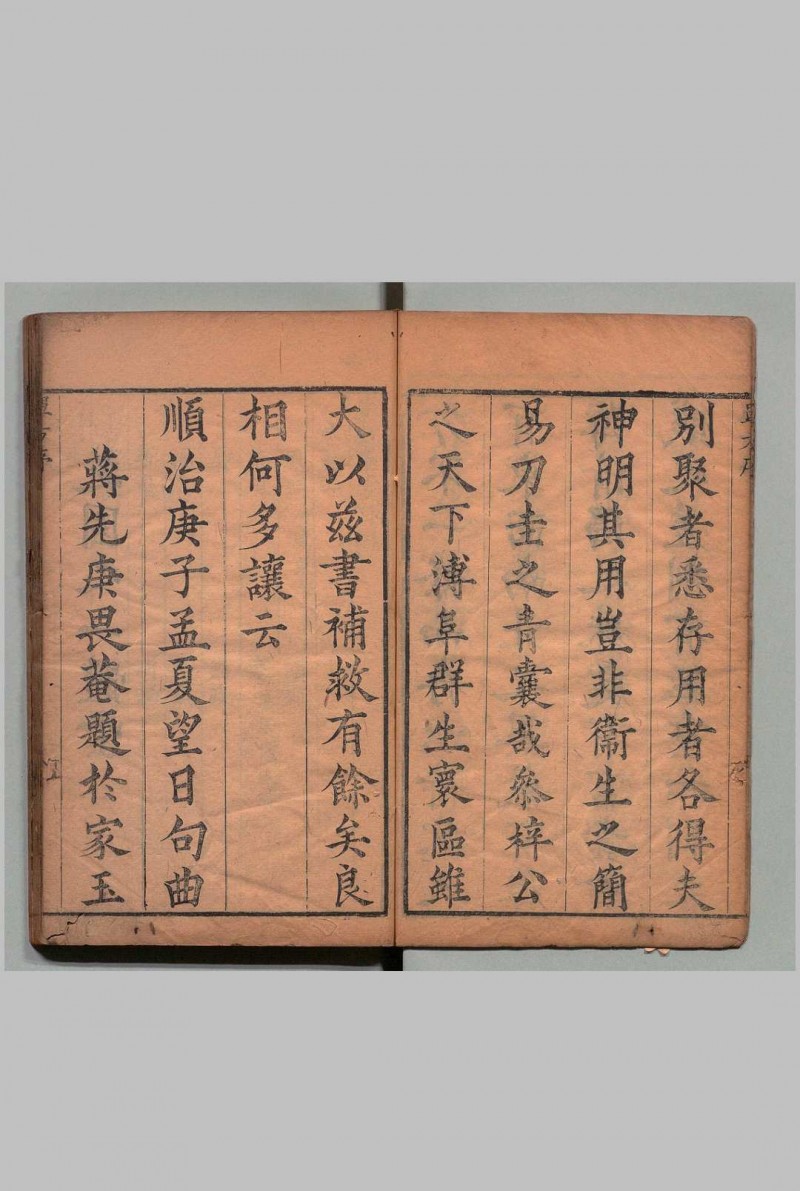 別聚者悉存用者各得夫
神明其用豈非衞生之簡
易刀圭之青囊哉叅梓公
之天下溥阜群生寰區雖
大以茲書補救有餘矣良
相何多讓云
順治庚子孟夏望日句曲
蔣先庚畏菴題於家玉